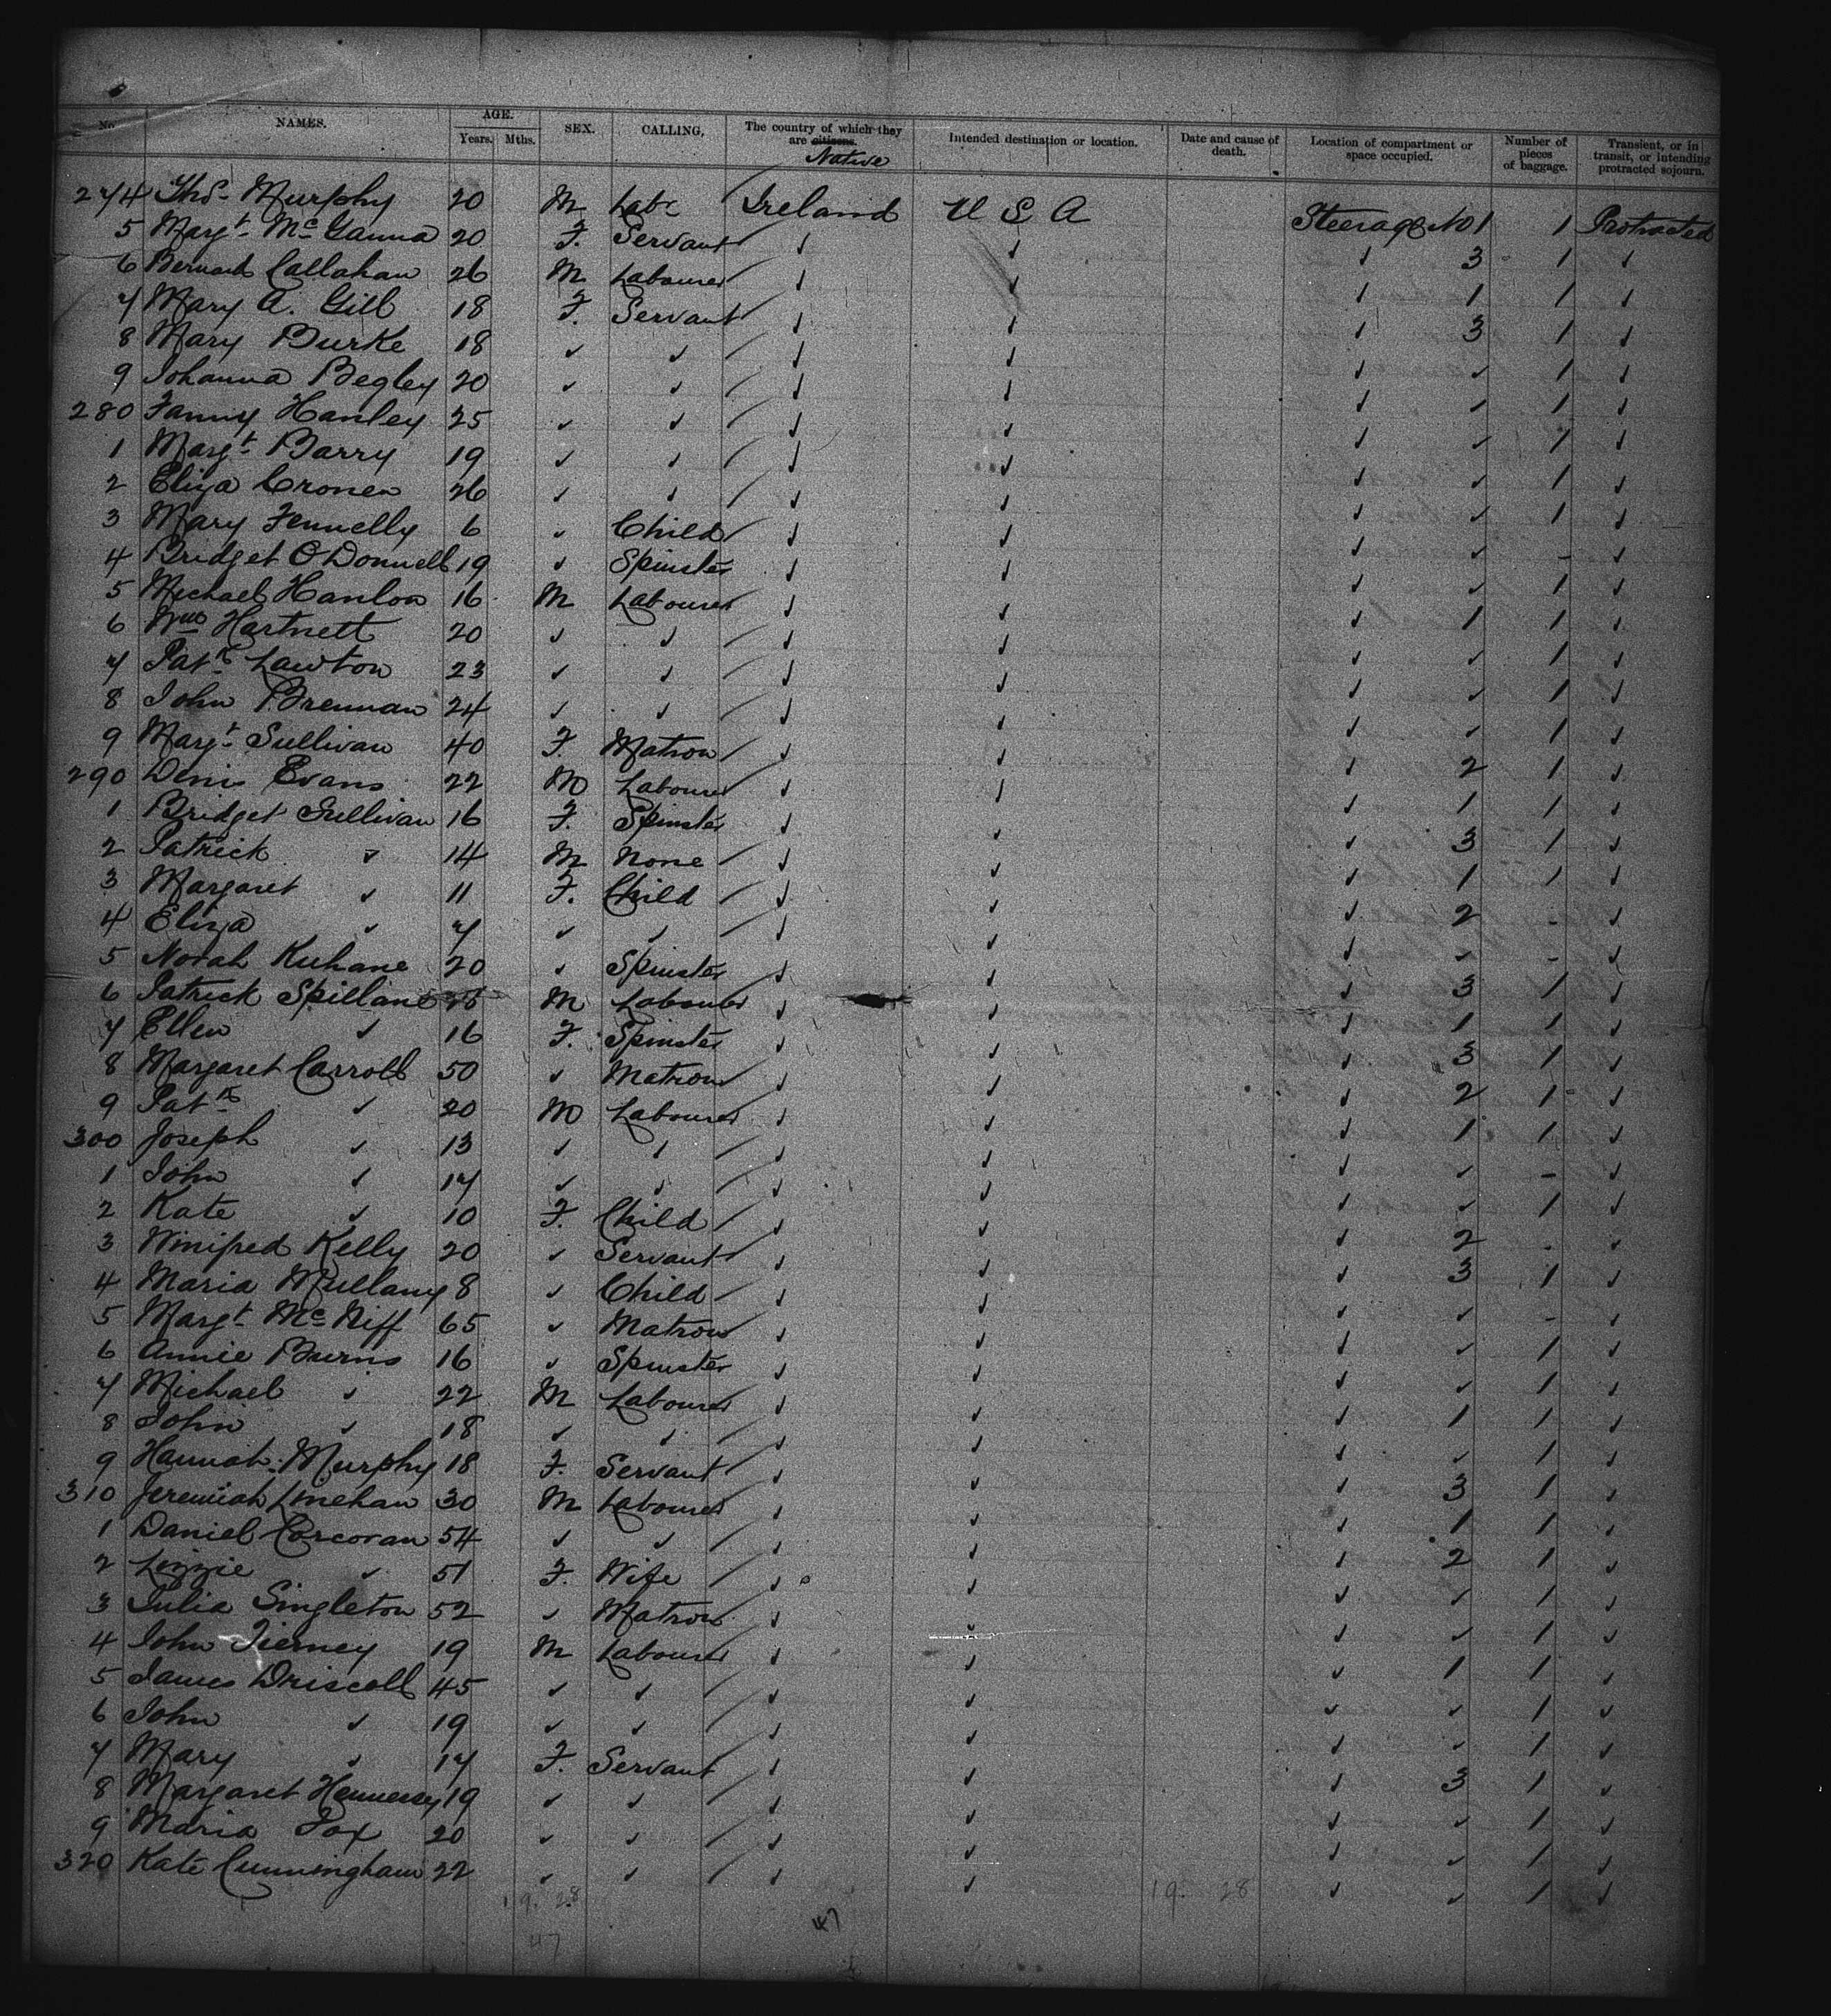 No. NAMES. AGE. Years. Mths. SEX. CALLING, The country of which they are citizens. Native Intended destination or location. Date and cause of death. Location of compartment or space occupied. Number of pieces of baggage. Transient, or in transit, or intending protracted sojourn.
274 Thos Murphy 20 M Labr Ireland U S A Steerage No 1 1 Protracted
5 Margt McGanna 20 F. Servant ✓ ✓ ✓ 3 1 ✓
6 Bernard Callahan 26 M Labourer ✓ ✓ ✓ 1 1 ✓
7 Mary A. Gill 18 F. Servant ✓ ✓ ✓ 3 1 ✓
8 Mary Burke 18 ✓ ✓ ✓ ✓ ✓ ✓ 1 ✓
9 Johanna Begley 20 ✓ ✓ ✓ ✓ ✓ ✓ 1 ✓
280 Fanny Hanley 25 ✓ ✓ ✓ ✓ ✓ ✓ 1 ✓
1 Margt Barry 19 ✓ ✓ ✓ ✓ ✓ ✓ 1 ✓
2 Eliza Cronen 26 ✓ ✓ ✓ ✓ ✓ ✓ 1 ✓
3 Mary Fennelly 6 ✓ Child ✓ ✓ ✓ ✓ - ✓
4 Bridget O'Donnell 19 ✓ Spinster ✓ ✓ ✓ ✓ 1 ✓
5 Michael Hanlon 16 M Labourer ✓ ✓ ✓ 1 1 ✓
6 Wm Hartnett 20 ✓ ✓ ✓ ✓ ✓ ✓ 1 ✓
7 Patk Lawton 23 ✓ ✓ ✓ ✓ ✓ ✓ 1 ✓
8 John Brennan 24 ✓ ✓ ✓ ✓ ✓ ✓ 1 ✓
9 Margt Sullivan 40 F. Matron ✓ ✓ ✓ 2 1 ✓
290 Denis Evans 22 M Labourer ✓ ✓ ✓ 1 1 ✓
1 Bridget Sullivan 16 F. Spinster ✓ ✓ ✓ 3 1 ✓
2 Patrick ✓ 14 M None ✓ ✓ ✓ 1 1 ✓
3 Margaret ✓ 11 F. Child ✓ ✓ ✓ 2 - ✓
4 Eliza ✓ 7 ✓ ✓ ✓ ✓ ✓ ✓ - ✓
5 Norah Kuhane 20 ✓ Spinster ✓ ✓ ✓ 3 1 ✓
6 Patrick Spillane M Labourer ✓ ✓ ✓ 1 1 ✓
7 Ellen ✓ 16 F. Spinster ✓ ✓ ✓ 3 1 ✓
8 Margaret Carroll 50 ✓ Matron ✓ ✓ ✓ 2 1 ✓
9 Patk ✓ 20 M Labourer ✓ ✓ ✓ 1 1 ✓
300 Joseph ✓ 13 ✓ ✓ ✓ ✓ ✓ ✓ - ✓
1 John ✓ 17 ✓ ✓ ✓ ✓ ✓ ✓ 1 ✓
2 Kate ✓ 10 F. Child ✓ ✓ ✓ 2 - ✓
3 Winifred Kelly 20 ✓ Servant ✓ ✓ ✓ 3 1 ✓
4 Maria Mullany 8 ✓ Child ✓ ✓ ✓ ✓ - ✓
5 Margt McNiff 65 ✓ Matron ✓ ✓ ✓ ✓ 1 ✓
6 Annie Burns 16 ✓ Spinster ✓ ✓ ✓ ✓ 1 ✓
7 Michael ✓ 22 M Labourer ✓ ✓ ✓ 1 1 ✓
8 John ✓ 18 ✓ ✓ ✓ ✓ ✓ ✓ 1 ✓
9 Hannah Murphy 18 F. Servant ✓ ✓ ✓ 3 1 ✓
310 Jeremiah Linehan 30 M Labourer ✓ ✓ ✓ 1 1 ✓
1 Daniel Corcoran 54 ✓ ✓ ✓ ✓ ✓ 2 1 ✓
2 Lizzie ✓ 51 F. Wife ✓ ✓ ✓ ✓ 1 ✓
3 Julia Singleton 52 ✓ Matron ✓ ✓ ✓ ✓ 1 ✓
4 John Tierney 19 M Labourer ✓ ✓ ✓ 1 1 ✓
5 James Driscoll 45 ✓ ✓ ✓ ✓ ✓ ✓ 1 ✓
6 John ✓ 19 ✓ ✓ ✓ ✓ ✓ ✓ 1 ✓
7 Mary ✓ 17 F. Servant ✓ ✓ ✓ 3 1 ✓
8 Margaret Hennessy 19 ✓ ✓ ✓ ✓ ✓ ✓ 1 ✓
9 Maria Fox 20 ✓ ✓ ✓ ✓ ✓ ✓ 1 ✓
320 Kate Cunningham 22 ✓ ✓ ✓ ✓ ✓ ✓ 1 ✓
19. 28 19. 28
47
47